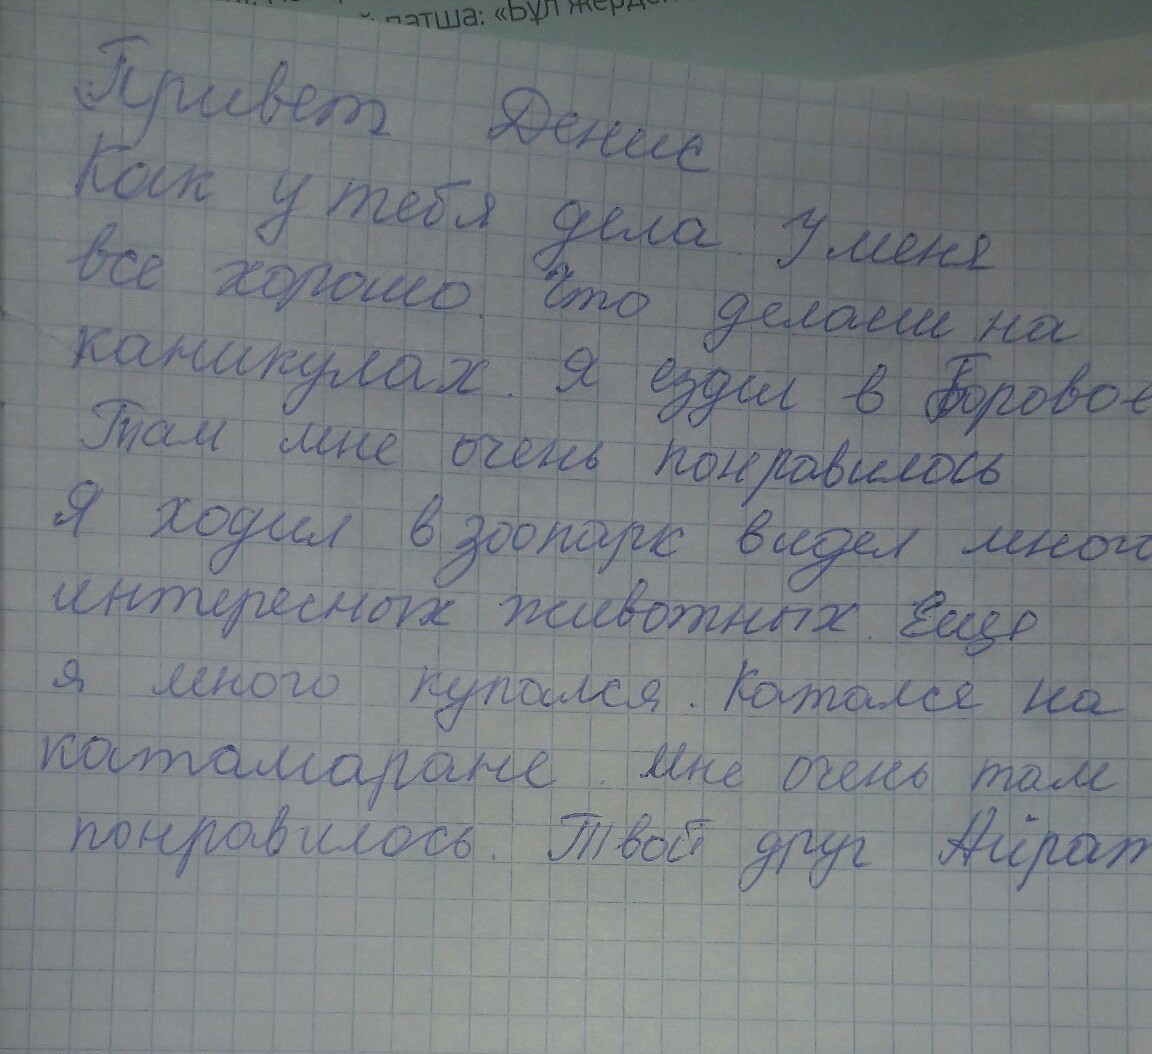 патша: «Бұл жерден
Привет Денис
Как у тебя дела. У меня
все хорошо. Что делаеш на
каникулах. Я ездил в Боровое
Там мне очень понравилось
Я ходил в зоопарк видел много
интересных животных. Еще
я много купался. Катался на
катамаране. Мне очень там
понравилось. Твой друг Айрат